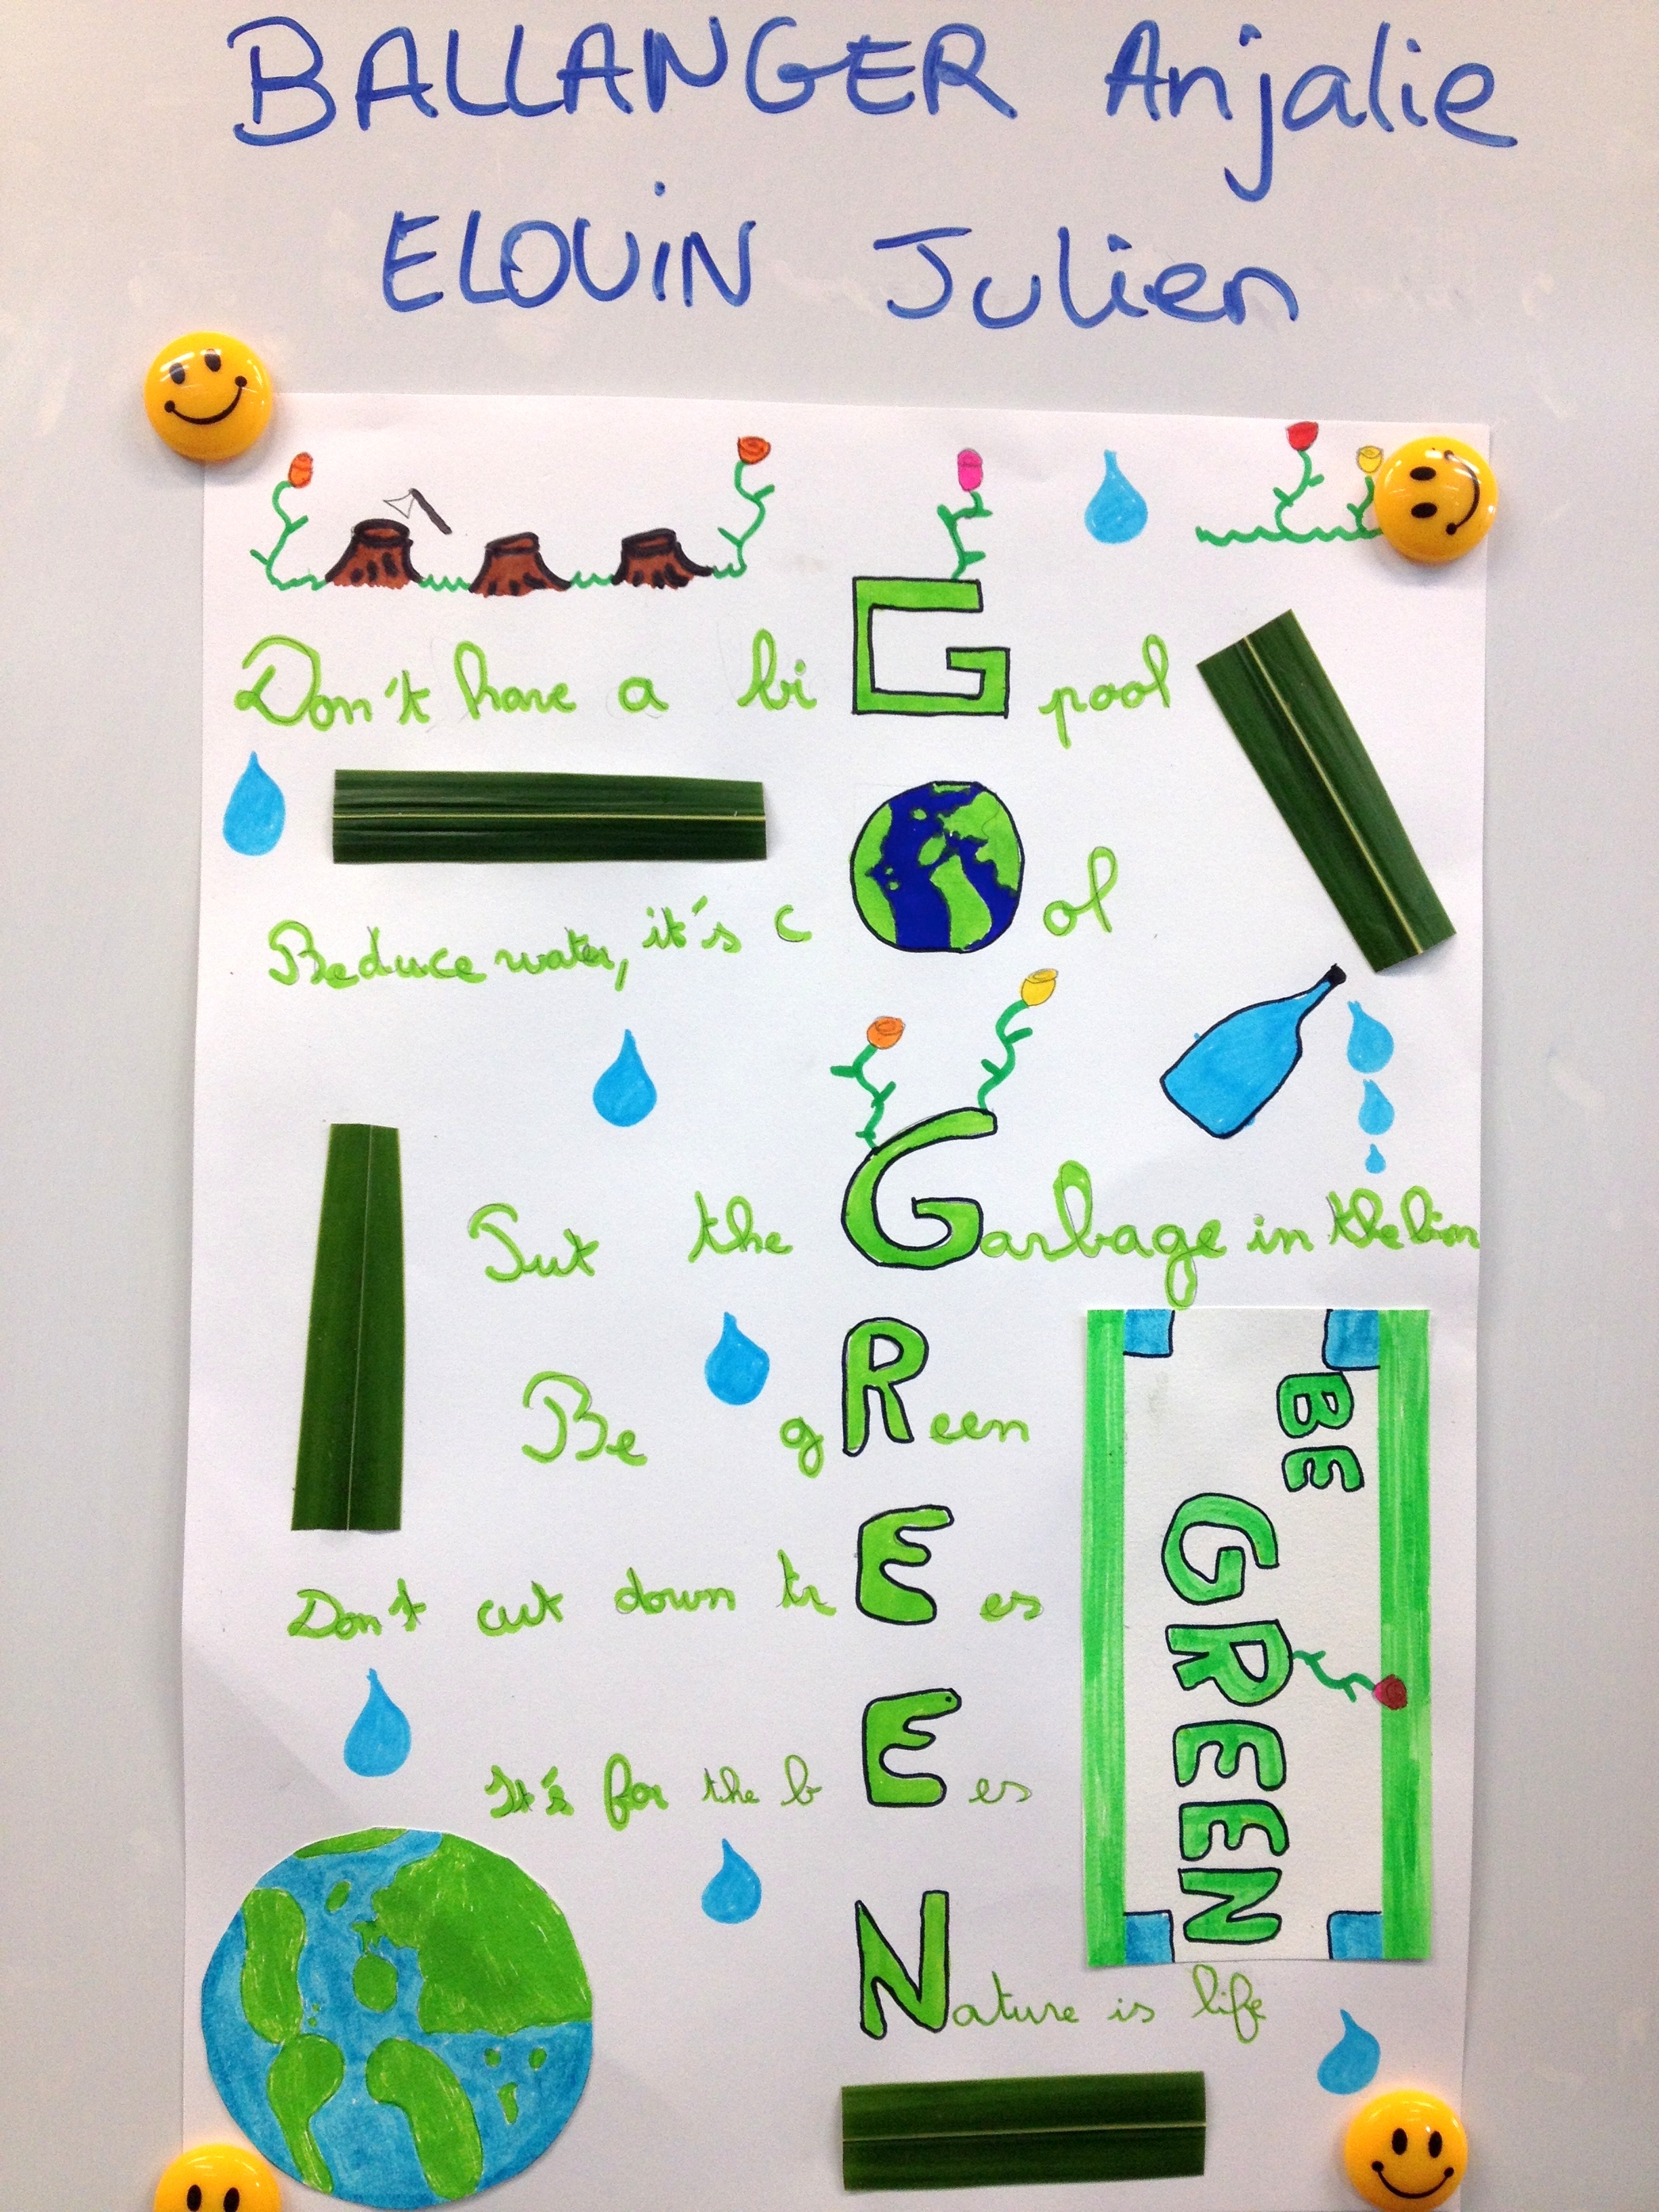 BALLANGER Anjalie
ELOUIN Julien
Don't have a biG pool
Reduce water, it's c ol
Put the Garbage in the bin
Be gReen
Don't cut down trEes
It's for the bEes
Nature is life
BE
GREEN